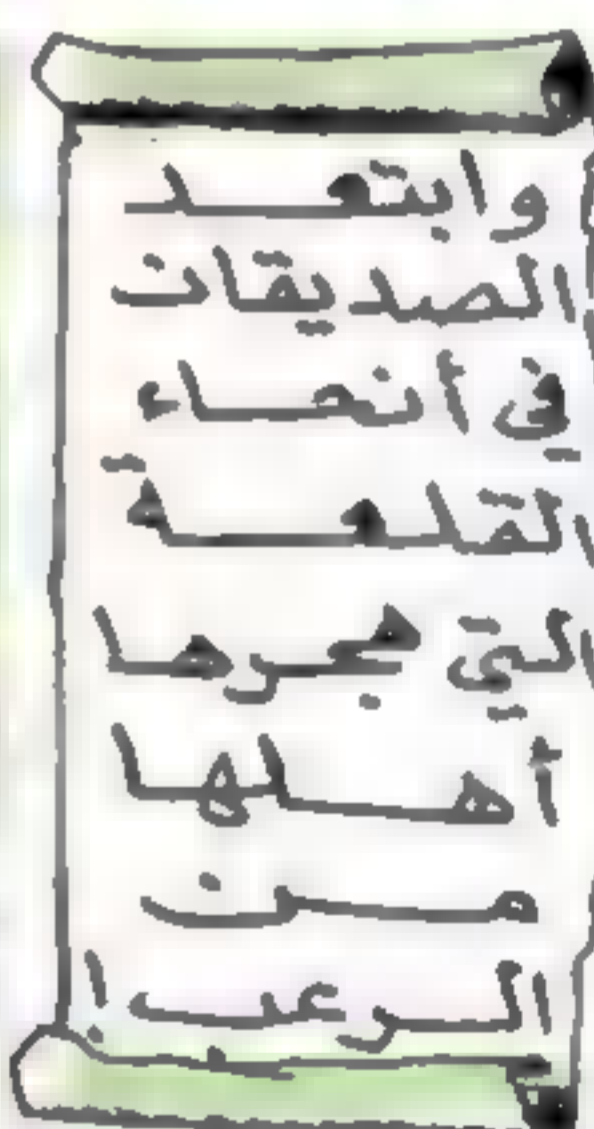 وابتعد
الصديقات
في أنحاء
القلعة
التي هجرها
أهلها
من
الرعب!